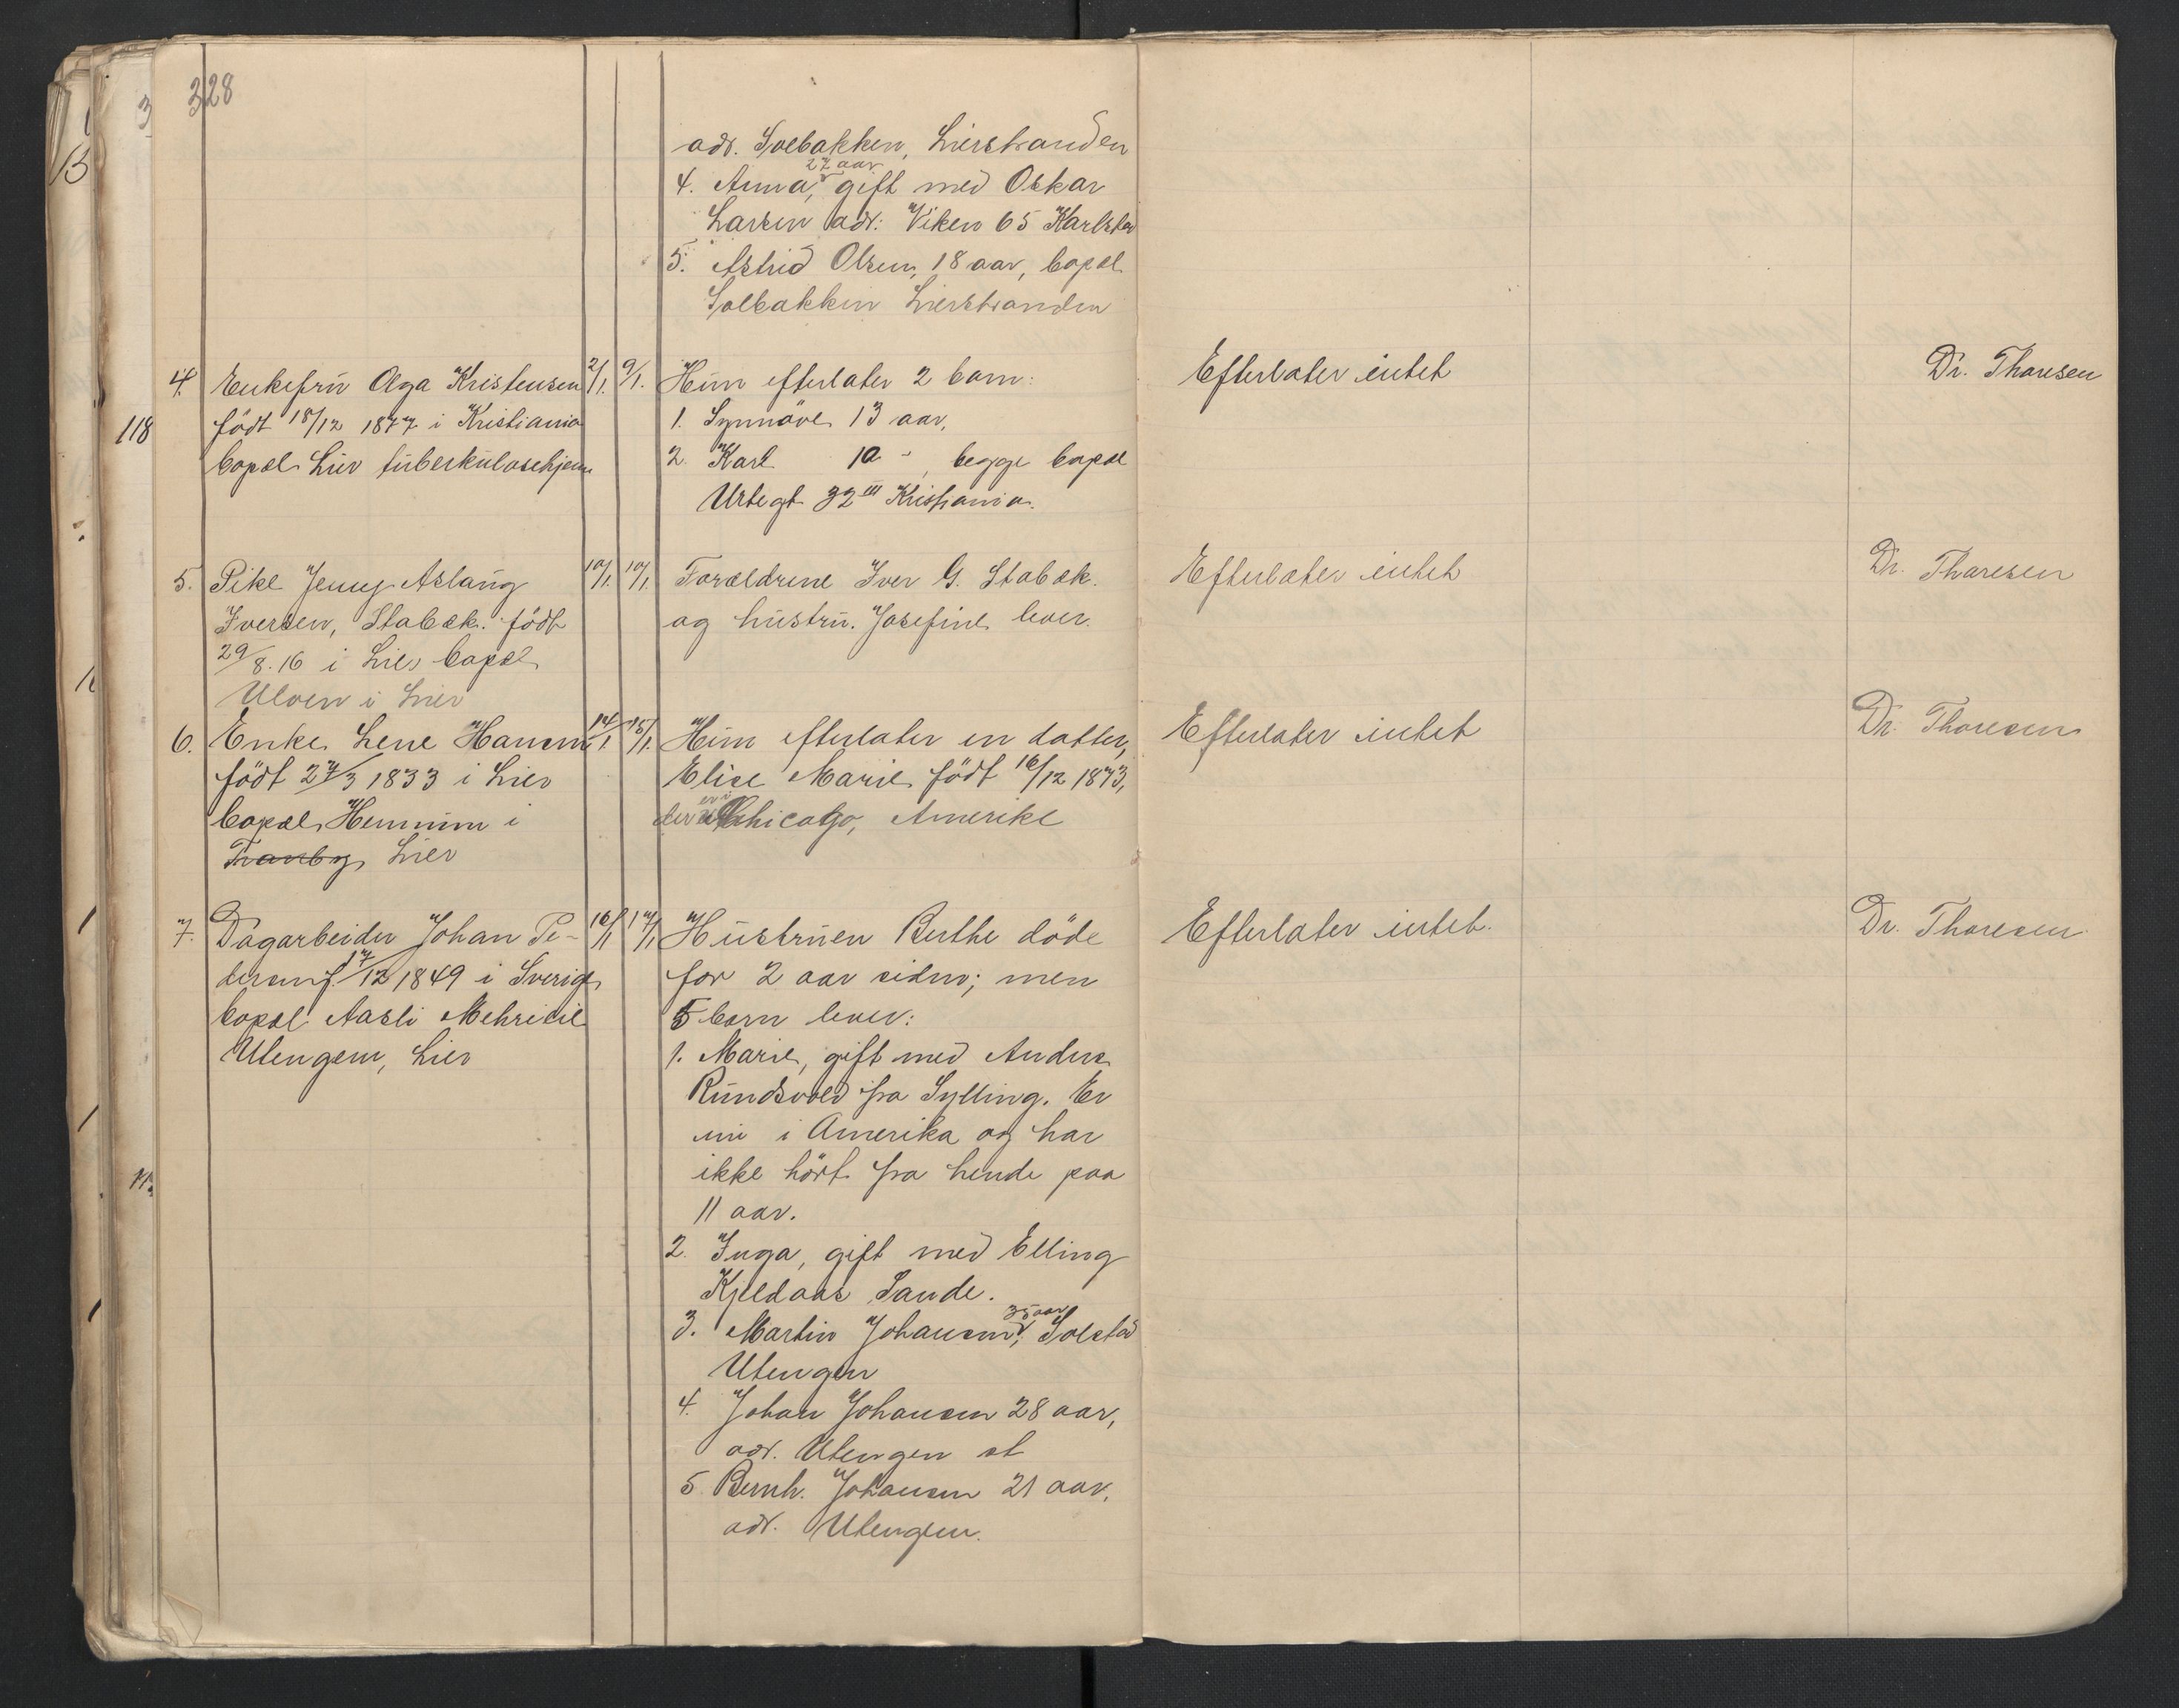 328
adr. Solbakken, Lierstranden
27 aar
4. Anna, gift med Oskar
Larsen adr: Viken 65 Karlstad
5. Astrid Olsen, 18 aar, bopæl
Solbakken Lierstranden
4. Enkefru Olga Kristensen 2/1. 9/1. Hun efterlater 2 barn: Efterlater intet Dr. Thoresen
118 født 18/12 1877 i Kristiania 1. Synnøve 13 aar,
bopæl Lier tuberkulosehjem 2. Karl 10 " , begge bopæl
Urtegt 32 III Kristiania.
5. Pike Jenny Aslaug 10/1. 10/1. Forældrene Iver G. Stabæk. Efterlater intet Dr. Thoresen
Iversen, Stabæk. født og hustru. Josefine lever.
29/8.16 i Lier bopæl
Ulven i Lier
6. Enke Lene Hansen 14/1 15/1. Hun efterlater en datter, Efterlater intet Dr. Thoresen
født 27/3 1833 i Lier Elise Marie født 16/12 1873,
bopæl Hennum i der er i Chicago, Amerike
Tranby Lier
7. Dagarbeider Johan Pe- 16/1 17/1 Hustruen Berthe døde Efterlater intet. Dr. Thoresen
dersen f. 17/12 1849 i Sverige for 2 aar siden; men
bopæl Aasli Mehreie 5 barn lever:
Utengen, Lier 1. Marie, gift med Anders
Rundsvold fra Sylling. Er
nu i Amerika og har
ikke hørt fra hende paa
11 aar.
2. Inga, gift med Elling
Kjeldaas Sande.
35 aar
3. Martin Johansen, Solstad
Utengen
4. Johan Johansen 28 aar,
adr. Utengen st
5. Bernh. Johansen 21 aar,
adr. Utengen.